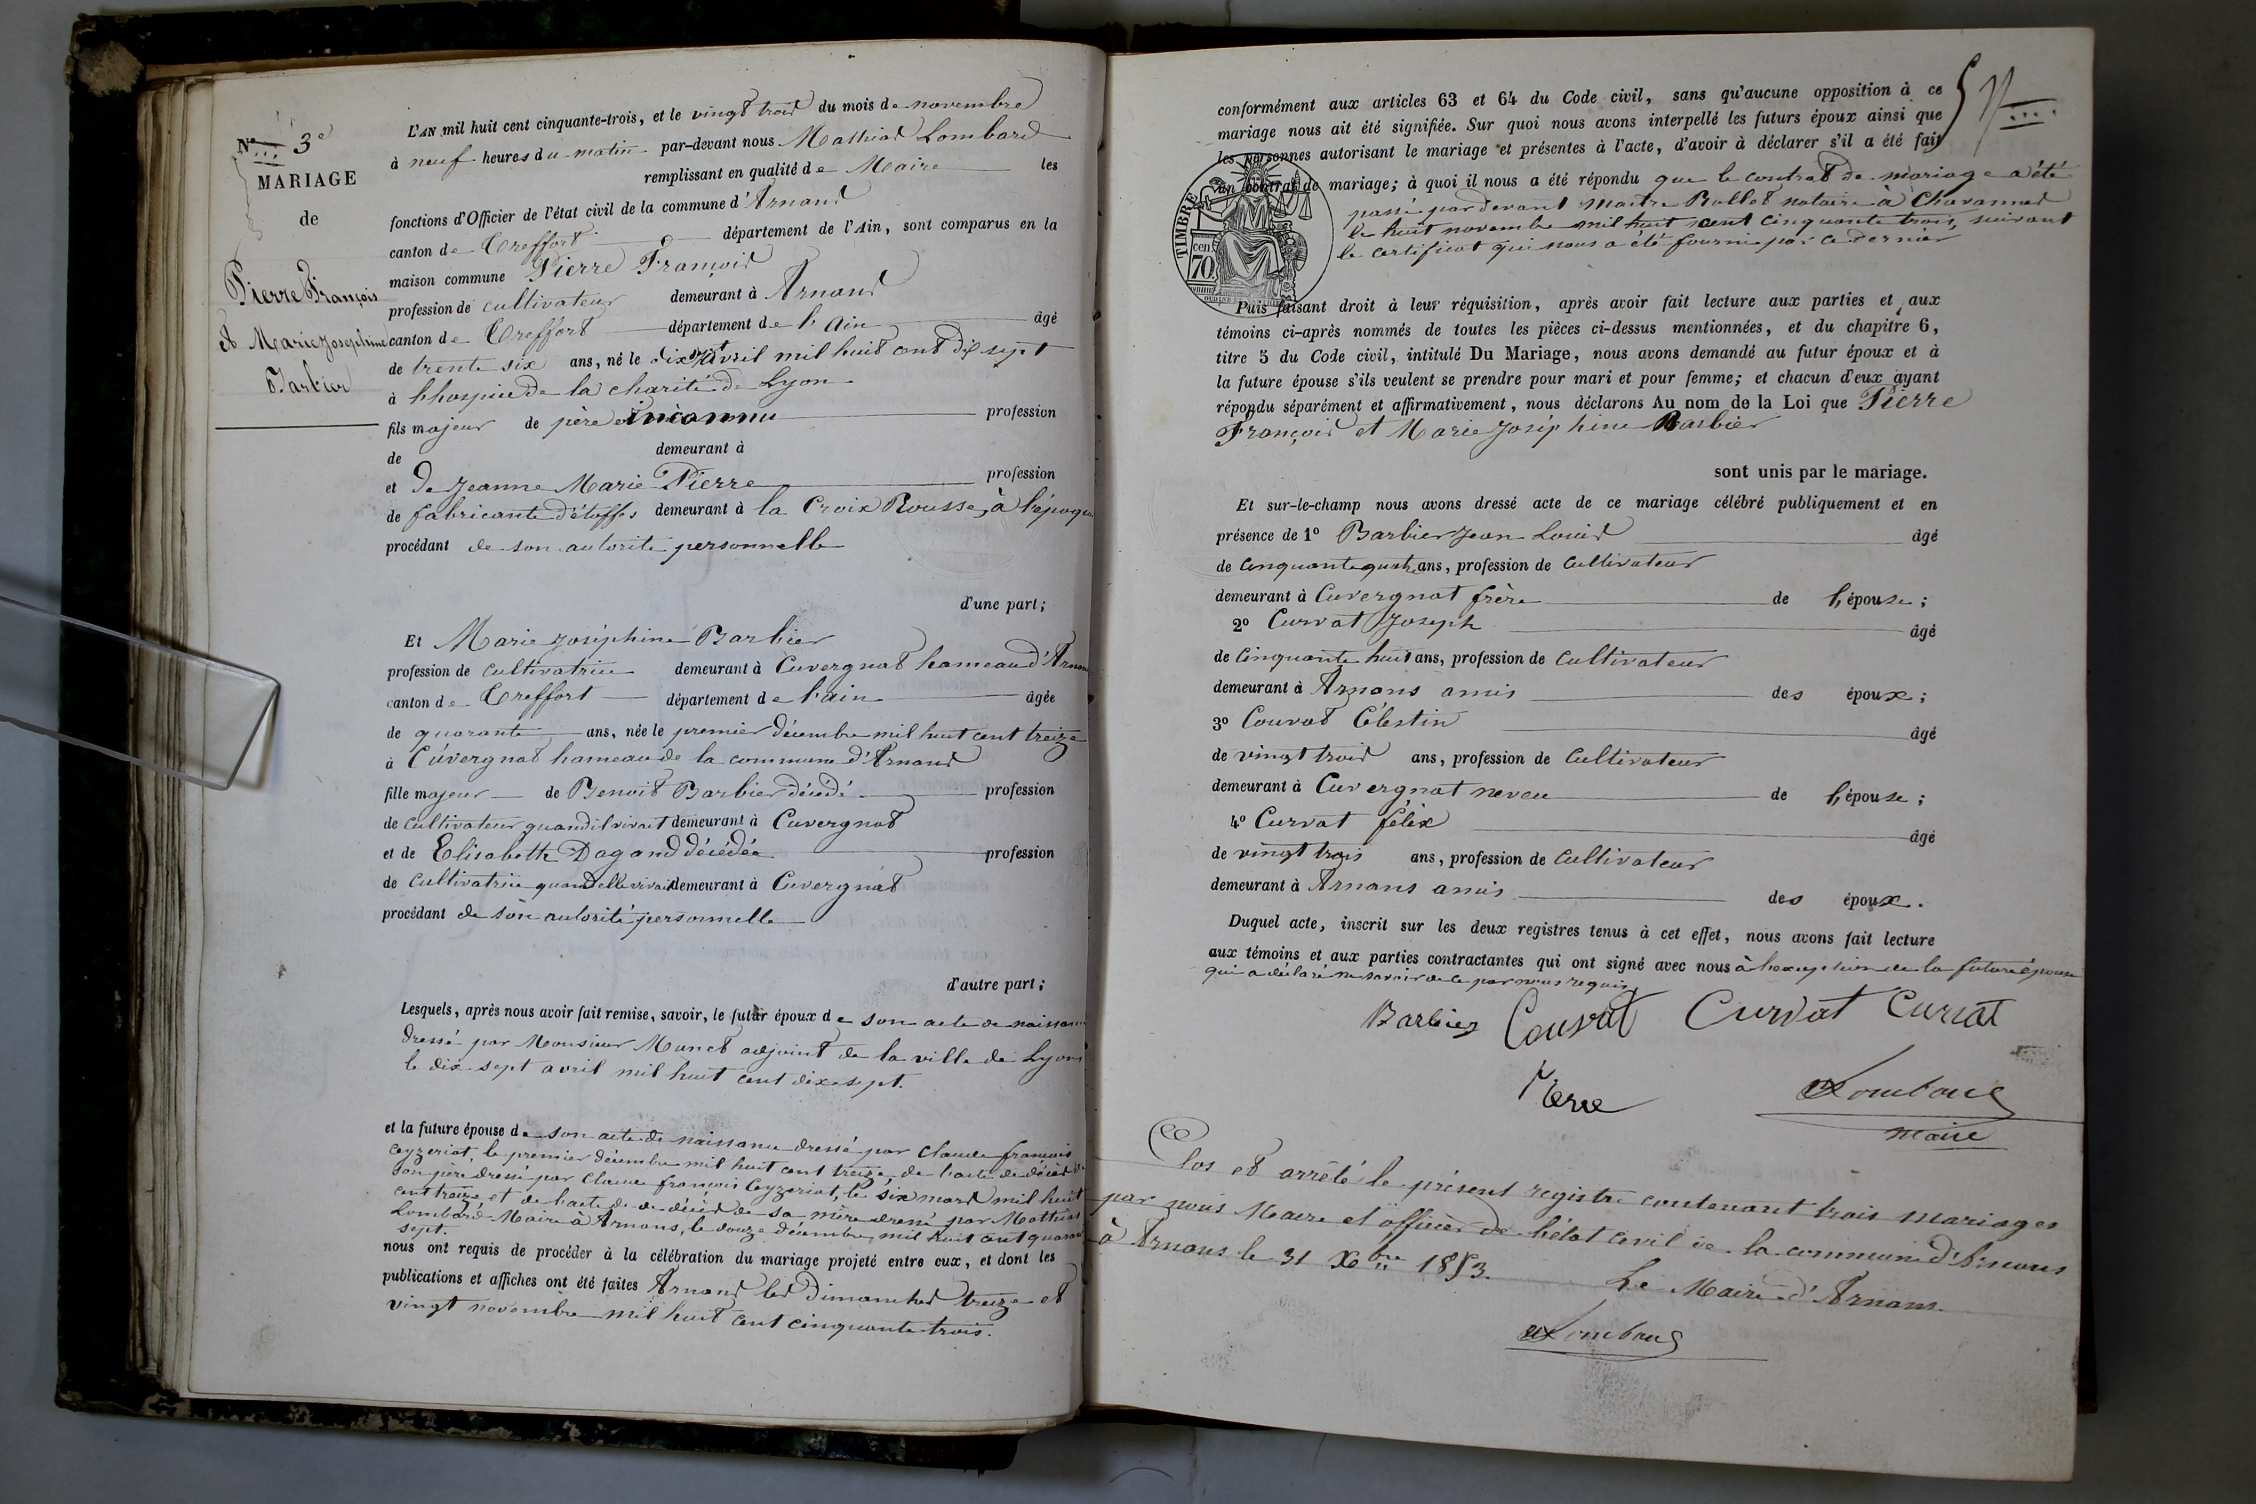 N° 3e
MARIAGE
de
Pierre François
et Marie Josephine
Barbier
L'AN mil huit cent cinquante-trois, et le vingt trois du mois de novembre
à neuf heures du matin par-devant nous Mathias Lombard
remplissant en qualité de Maire les
fonctions d'Officier de l'état civil de la commune d'Arnans
canton de Treffort département de l'Ain, sont comparus en la
maison commune Pierre François
profession de cultivateur demeurant à Arnans
canton de Treffort département de l'Ain âgé
de trente six ans, né le dix sept avril mil huit cent dix sept
à l'hospice de la charité de Lyon
fils majeur de père inconnu profession
de demeurant à
et de Jeanne Marie Pierre profession
de fabricante d'étoffes demeurant à la Croix Rousse, à l'époque
procédant de son autorité personnelle
d'une part;
Et Marie Joséphine Barbier
profession de cultivatrice demeurant à Cuvergnat hameau d'Arnans
canton de Treffort département de l'ain âgée
de quarante ans, née le premier décembre mil huit cent treize
à Cuvergnat hameau de la commune d'Arnans
fille majeur de Benoit Barbier décédé profession
de cultivateur quand il vivait demeurant à Cuvergnat
et de Elisabeth Dagand décédée profession
de cultivatrice quand elle vivait demeurant à Cuvergnat
procédant de son autorité personnelle
d'autre part;
Lesquels, après nous avoir fait remise, savoir, le futur époux de son acte de naissance
dressé par Monsieur adjoint de la ville de Lyon
le dix sept avril mil huit cent dix sept.
et la future épouse de son acte de naissance dressé par Claude françois
Ceyzeriat, le premier décembre mil huit cent treize, de l'acte de décès de
son père dressé par Claude françois Ceyzeriat, le six mars mil huit
cent treize et de l'acte de décès de sa mère dressé par Mathias
Lombard Maire à Arnans, le douze décembre mil huit cent quarante
sept.
nous ont requis de procéder à la célébration du mariage projeté entre eux, et dont les
publications et affiches ont été faites Arnans les Dimanches treize et
vingt novembre mil huit cent cinquante trois.
conformément aux articles 63 et 64 du Code civil, sans qu'aucune opposition à ce
mariage nous ait été signifiée. Sur quoi nous avons interpellé les futurs époux ainsi que
les personnes autorisant le mariage et présentes à l'acte, d'avoir à déclarer s'il a été fait
un contrat de mariage; à quoi il nous a été répondu que le contrat de mariage a été
passé par devant maitre Bollet notaire à Chavannes
le huit novembre mil huit cent cinquante trois, suivant
le certificat qui nous a été fourni par ce dernier
TIMBRE
cen
70
Puis faisant droit à leur réquisition, après avoir fait lecture aux parties et aux
témoins ci-après nommés de toutes les pièces ci-dessus mentionnées, et du chapitre 6,
titre 5 du Code civil, intitulé Du Mariage, nous avons demandé au futur époux et à
la future épouse s'ils veulent se prendre pour mari et pour femme; et chacun d'eux ayant
répondu séparément et affirmativement, nous déclarons Au nom de la Loi que Pierre
François et Marie Joséphine Barbier
sont unis par le mariage.
Et sur-le-champ nous avons dressé acte de ce mariage célébré publiquement et en
présence de 1° Barbier Jean Louis âgé
de cinquante quatre ans, profession de cultivateur
demeurant à Cuvergnat frère de l'épouse;
2° Curvat Joseph âgé
de cinquante huit ans, profession de cultivateur
demeurant à Arnans amis des époux;
3° Couvat Célestin âgé
de vingt trois ans, profession de cultivateur
demeurant à Cuvergnat neveu de l'épouse;
4° Curvat félix âgé
de vingt trois ans, profession de cultivateur
demeurant à Arnans amis des époux.
Duquel acte, inscrit sur les deux registres tenus à cet effet, nous avons fait lecture
aux témoins et aux parties contractantes qui ont signé avec nous à l'exception de la future épouse
qui a déclaré ne savoir de ce par nous requis
Barbier Couvat Curvat Curvat
Pierre Lombard
maire
Clos et arrêté le présent registre contenant trois mariages
par nous Maire et officier de l'état civil de la commune d'Arnans
à Arnans le 31 Xbre 1853.
Le Maire d'Arnans.
Lombard